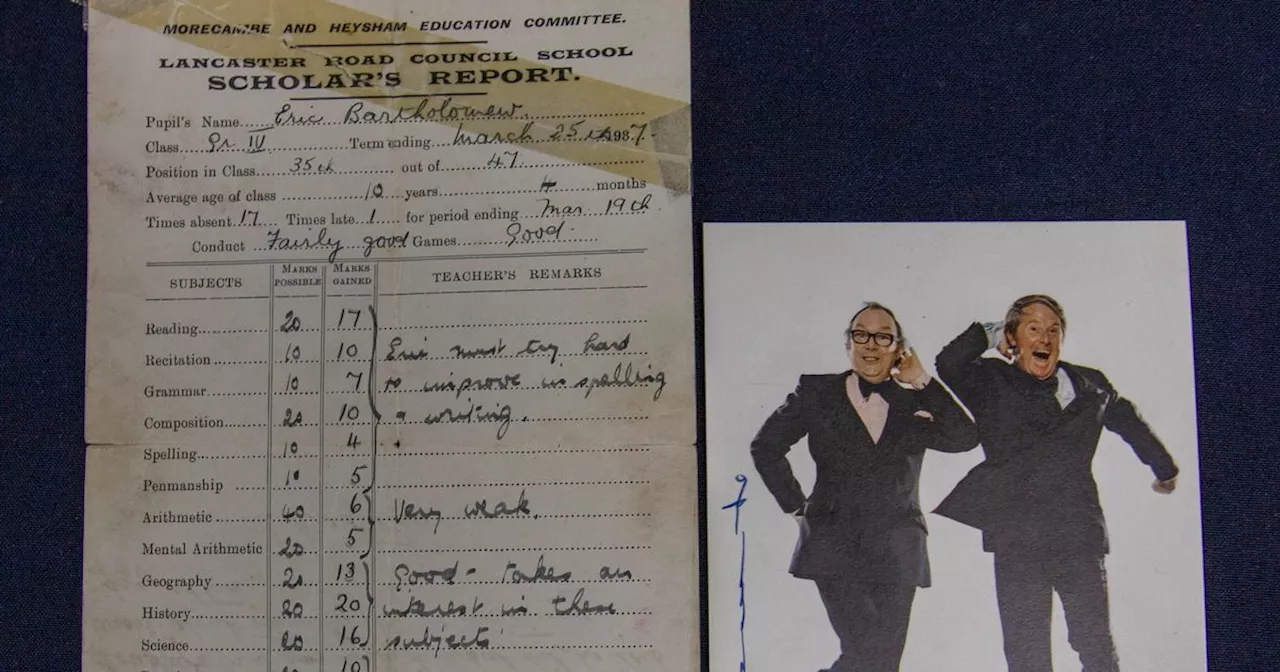 MORECAMBE AND HEYSHAM EDUCATION COMMITTEE.
LANCASTER ROAD COUNCIL SCHOOL
SCHOLAR'S REPORT.
Pupil's Name Eric Bartholomew.
Class Gr IV Term ending March 25th 1937.
Position in Class 35th out of 47
Average age of class 10 years 4 months
Times absent 17 Times late 1 for period ending Mar 19th
Conduct Fairly good Games Good
SUBJECTS MARKS POSSIBLE MARKS GAINED TEACHER'S REMARKS
Reading 20 17
Recitation 10 10 Eric must try hard
Grammar 10 7 to improve in spelling
Composition 20 10 & writing.
Spelling 10 4
Penmanship 10 5
Arithmetic 40 6 Very weak.
Mental Arithmetic 20 5
Geography 20 13 Good - takes an
History 20 20 interest in these
Science 20 16 subjects
20 10